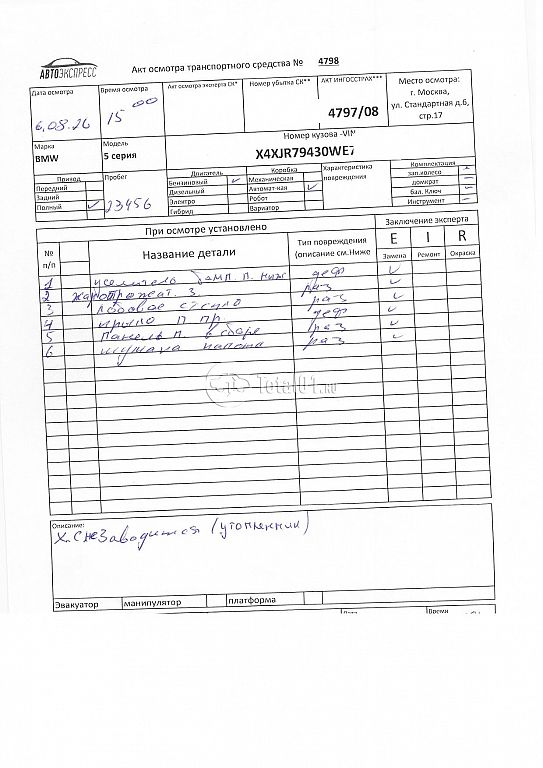 АВТОЭКСПРЕСС
Акт осмотра транспортного средства № 4798
Дата осмотра
Время осмотра
Акт осмотра эксперта СК*
Номер убытка СК**
АКТ ИНГОССТРАХ***
Место осмотра:
г. Москва,
ул. Стандартная д.6,
стр.17
15 00
4797/08
Марка
BMW
Модель
5 серия
Номер кузова -VIN
X4XJR79430WE7
Привод
Передний
Задний
Полный
Пробег
23456
Двигатель
Бензиновый
Дизельный
Электро
Гибрид
Коробка
Механическая
Автомат-кая
Робот
Вариатор
Характеристика
повреждения
Комплектация
зап.колесо
домкрат
бал. Ключ
Инструмент
При осмотре установлено
Заключение эксперта
№
п/п
Название детали
Тип повреждения
(описание см.Ниже
E I R
Замена Ремонт Окраска
1 усилитель бамп. п. ниж деф
2 раз
3 Лобовое стекло раз
4 крыло П пр. деф
5 Панель п в сборе раз
6 раз
Total01.ru
Описание:
Х.С не заводится (утопленник)
Эвакуатор манипулятор платформа
Дата Время